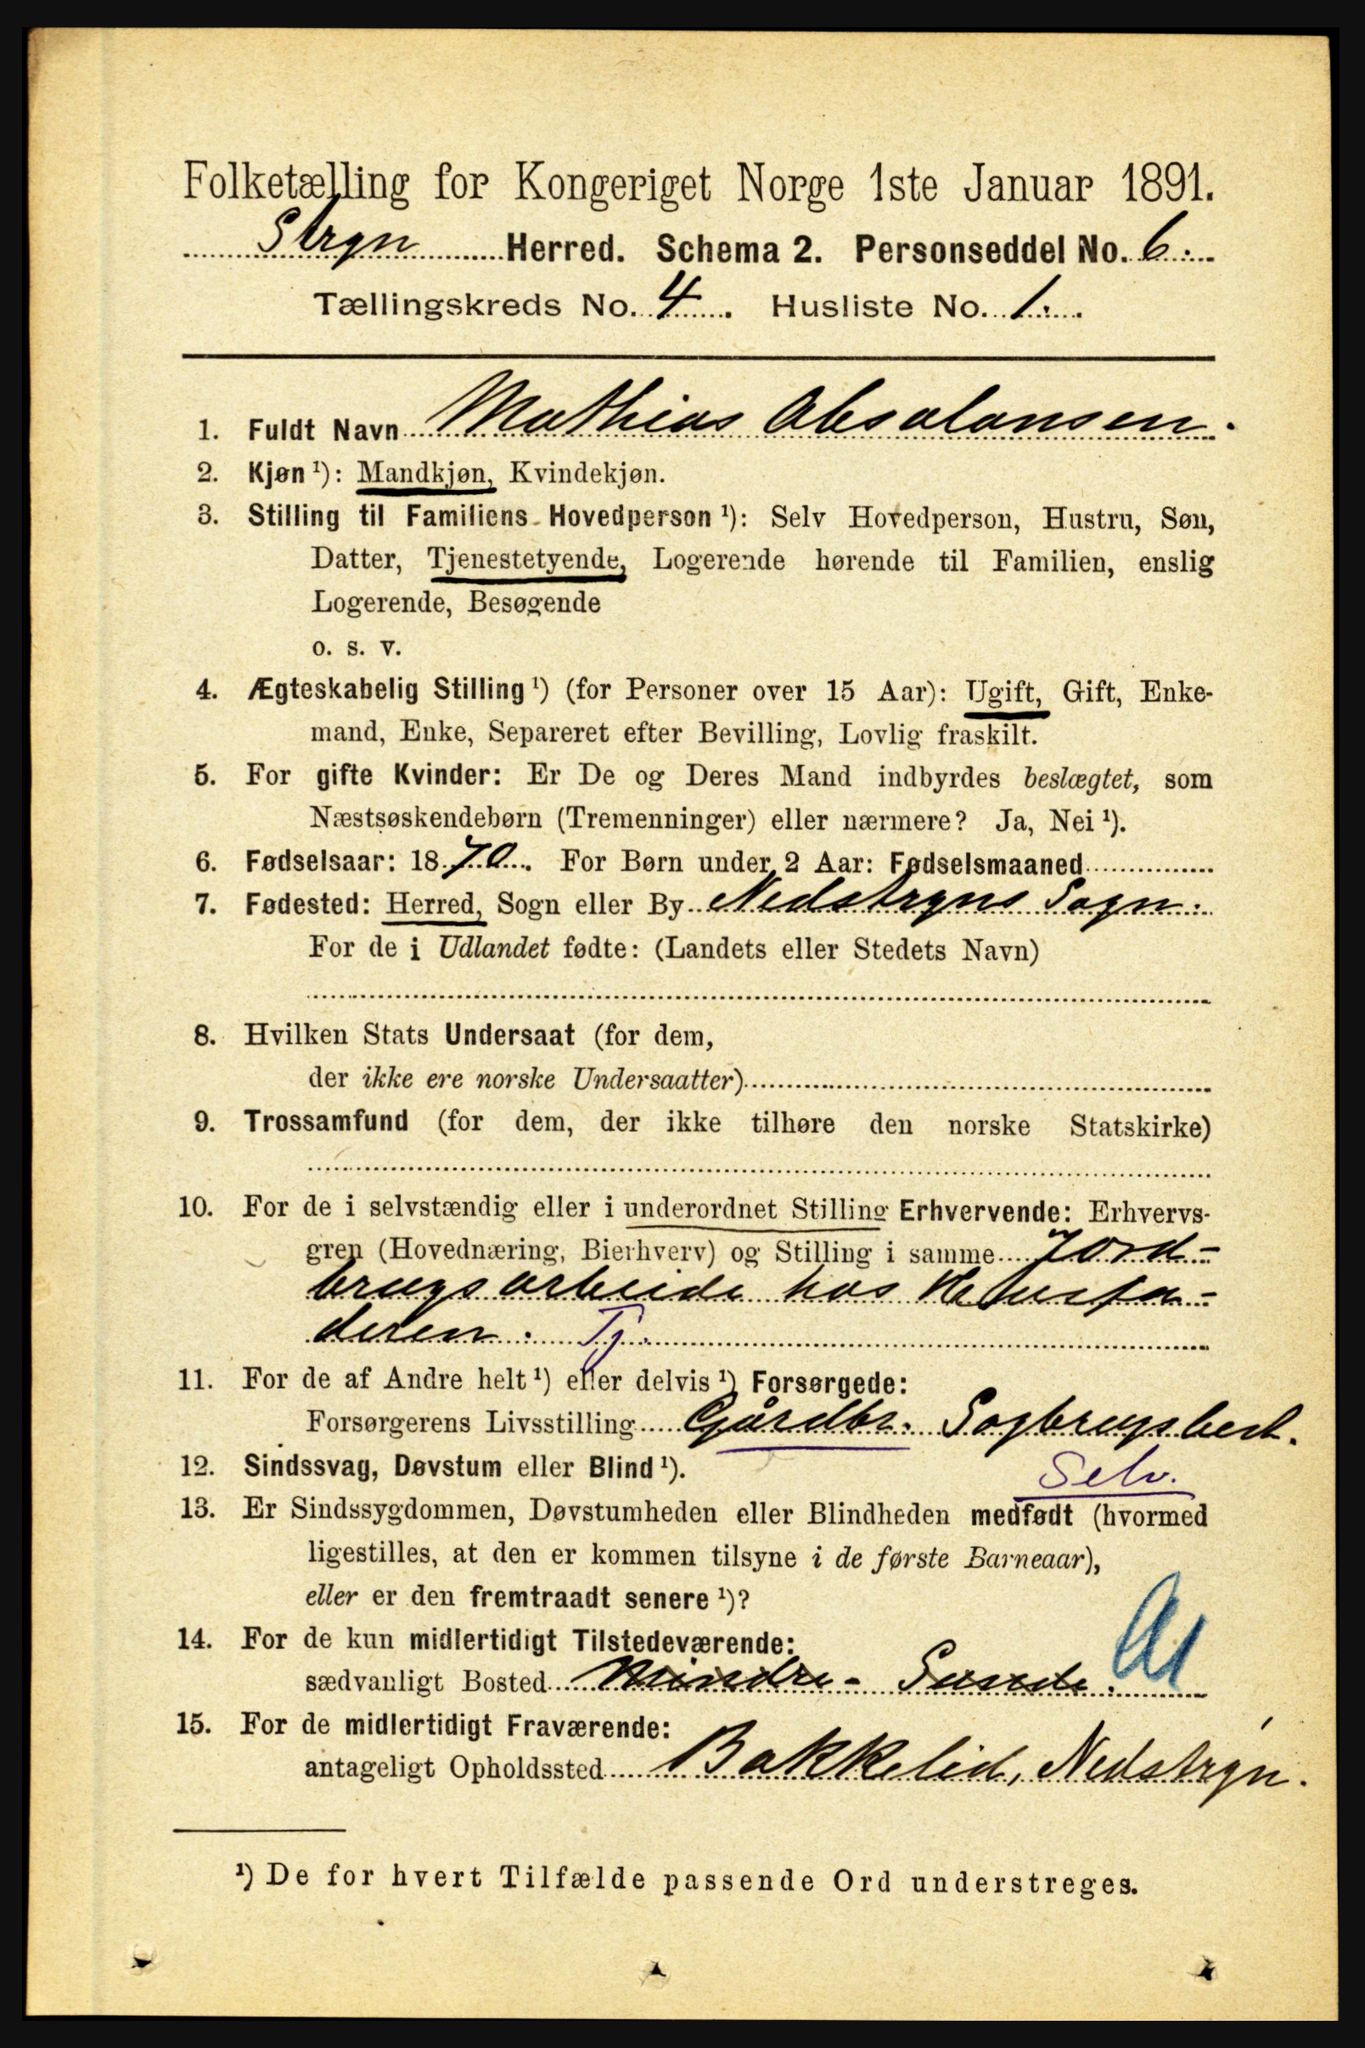 Folketælling for Kongeriget Norge 1ste Januar 1891.
Stryn Herred. Schema 2. Personseddel No. 6.
Tællingskreds No. 4. Husliste No. 1.
1. Fuldt Navn Mathias Absalonsen.
2. Kjøn ¹): Mandkjøn, Kvindekjøn.
3. Stilling til Familiens Hovedperson ¹): Selv Hovedperson, Hustru, Søn,
Datter, Tjenestetyende, Logerende hørende til Familien, enslig
Logerende, Besøgende
o. s. v.
4. Ægteskabelig Stilling ¹) (for Personer over 15 Aar): Ugift, Gift, Enke-
mand, Enke, Separeret efter Bevilling, Lovlig fraskilt.
5. For gifte Kvinder: Er De og Deres Mand indbyrdes beslægtet, som
Næstsøskendebørn (Tremenninger) eller nærmere? Ja, Nei ¹).
6. Fødselsaar: 1870. For Børn under 2 Aar: Fødselsmaaned
7. Fødested: Herred, Sogn eller By Nedstryns Sogn.
For de i Udlandet fødte: (Landets eller Stedets Navn)
8. Hvilken Stats Undersaat (for dem,
der ikke ere norske Undersaatter)
9. Trossamfund (for dem, der ikke tilhøre den norske Statskirke)
10. For de i selvstændig eller i underordnet Stilling Erhvervende: Erhvervs-
gren (Hovednæring, Bierhverv) og Stilling i samme Jord-
brugsarbeide hos Husfa-
deren. Tj.
11. For de af Andre helt ¹) eller delvis ¹) Forsørgede:
Forsørgerens Livsstilling Gårdbr. Sagbrugsbest.
12. Sindssvag, Døvstum eller Blind ¹).
Selv.
13. Er Sindssygdommen, Døvstumheden eller Blindheden medfødt (hvormed
ligestilles, at den er kommen tilsyne i de første Barneaar),
eller er den fremtraadt senere ¹)?
14. For de kun midlertidigt Tilstedeværende:
sædvanligt Bosted Mindre-Sunde.
15. For de midlertidigt Fraværende:
antageligt Opholdssted Bakkelid, Nedstryn.
¹) De for hvert Tilfælde passende Ord understreges.